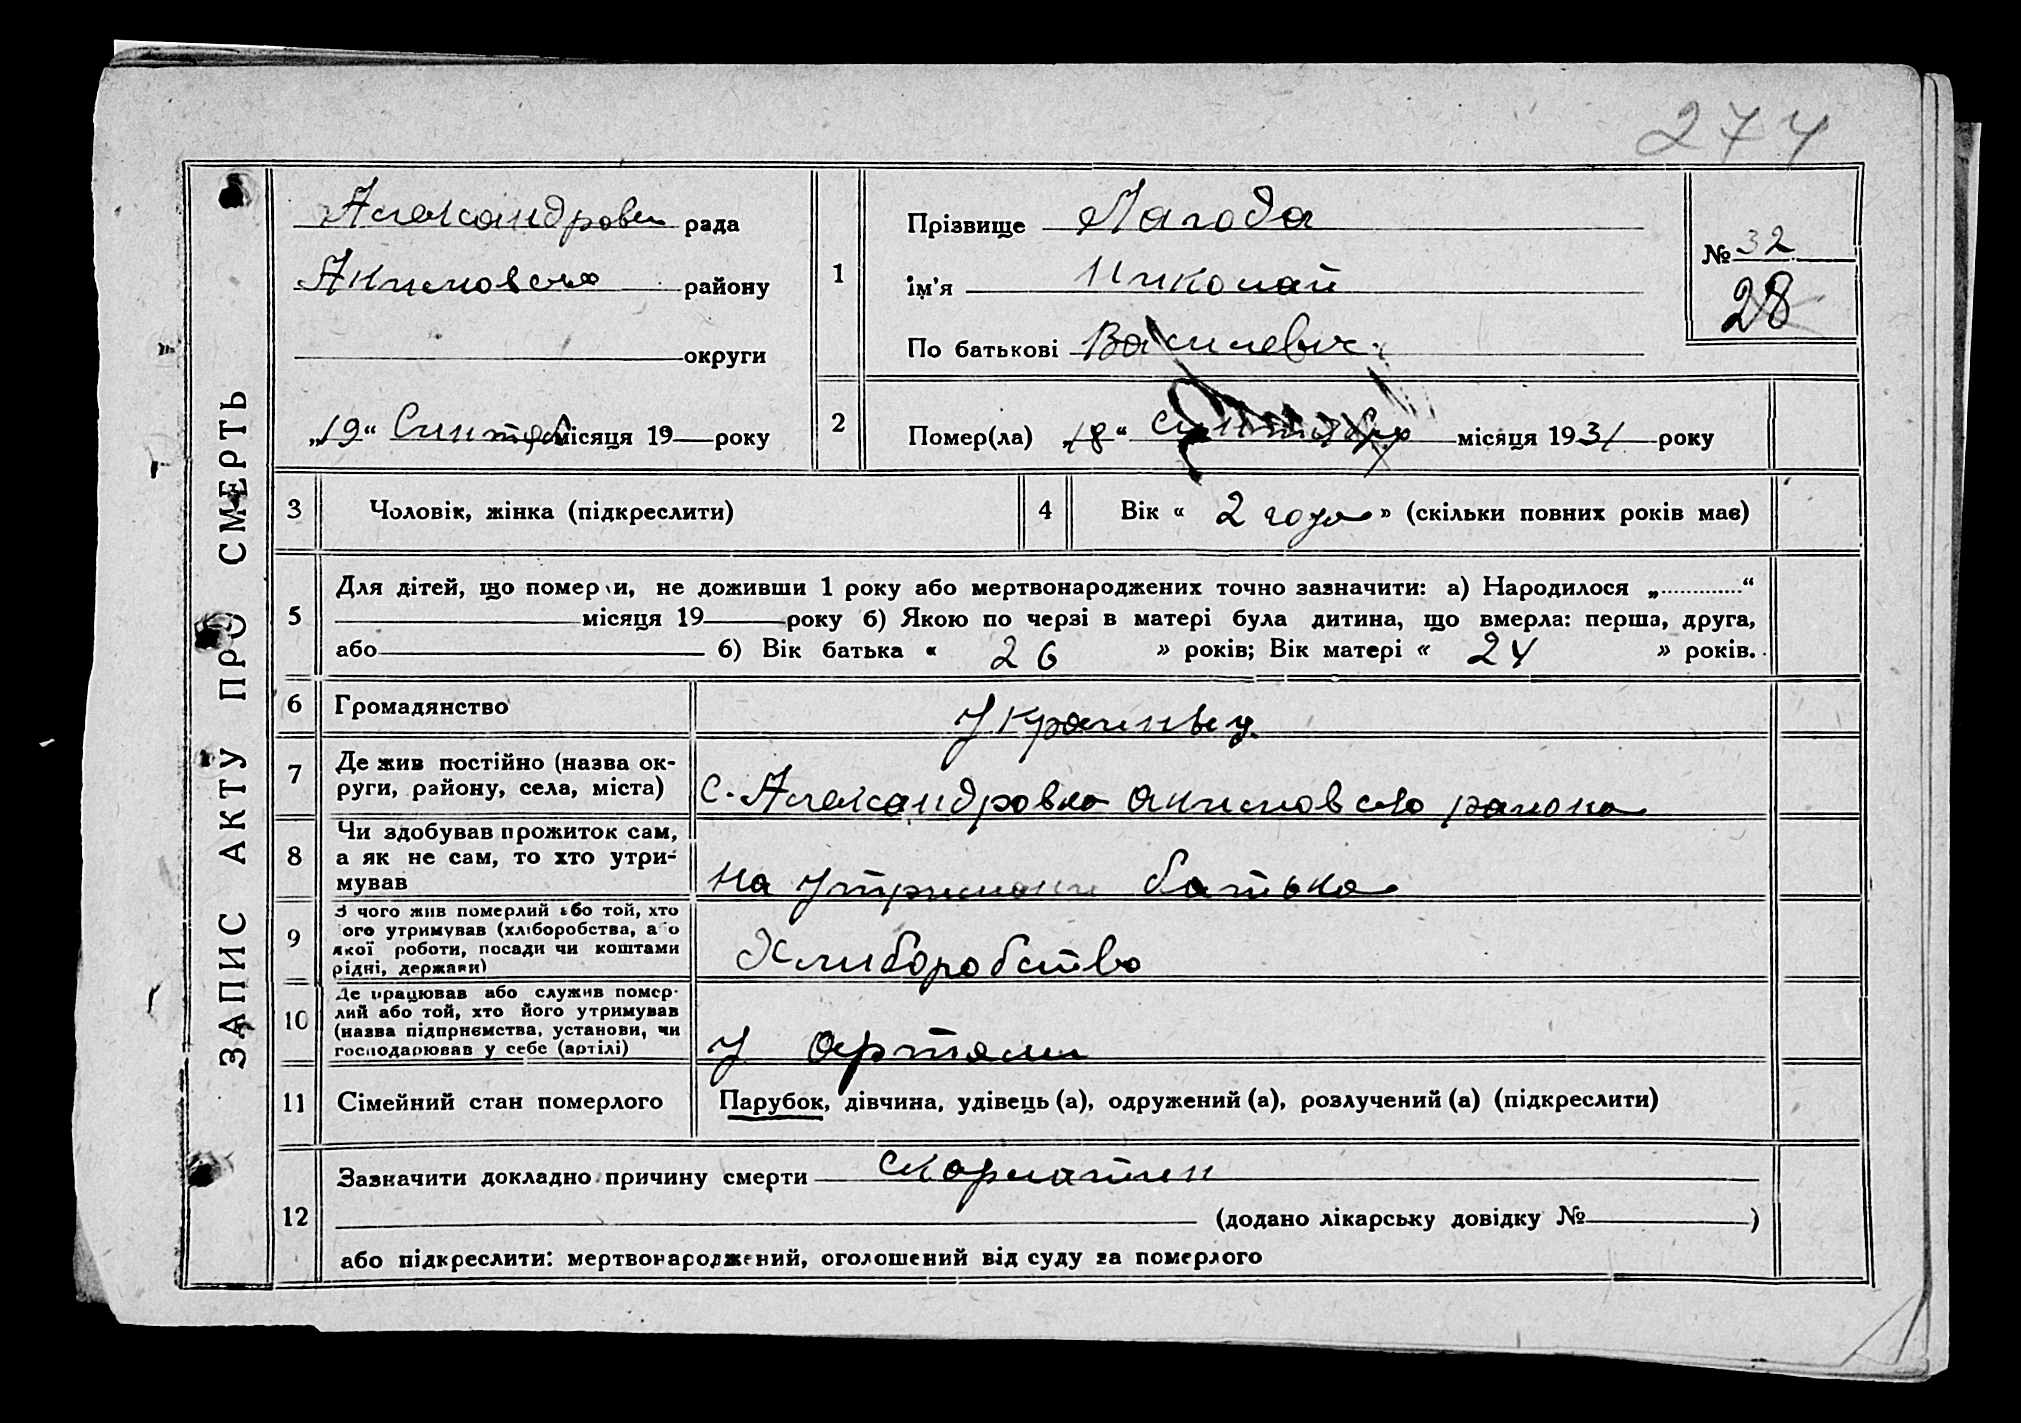 274
ЗАПИС АКТУ ПРО СМЕРТЬ
Александровск рада
Акимовского району
округи
„19“ Синтяб місяця 19 року
1
Прізвище Лагода
ім’я Николай
По батькові Василевич
№ 32
28
2
Помер(ла) „18“ синтября місяця 1931 року
3
Чоловік, жінка (підкреслити)
4
Вік « 2 года » (скільки повних років має)
5
Для дітей, що померли, не доживши 1 року або мертвонароджених точно зазначити: а) Народилося „ “
місяця 19 року б) Якою по черзі в матері була дитина, що вмерла: перша, друга,
або б) Вік батька « 26 » років; Вік матері « 24 » років.
6
Громадянство
Украиньц
7
Де жив постійно (назва ок-
руги, району, села, міста)
с. Александровка акимовсько района
8
Чи здобував прожиток сам,
а як не сам, то хто утри-
мував
на утримани батька
9
З чого жив померлий або той, хто
ого утримував (хліборобства, або
якої роботи, посади чи коштами
рідні, держави)
Хлиборобство
10
Де працював або служив помер-
лий або той, хто його утримував
(назва підприємства, установи, чи
господарював у себе (артілі)
У артели
11
Сімейний стан померлого
Парубок, дівчина, удівець (а), одружений (а), розлучений (а) (підкреслити)
12
Зазначити докладно причину смерти скорлатин
(додано лікарську довідку № )
або підкреслити: мертвонароджений, оголошений від суду за померлого